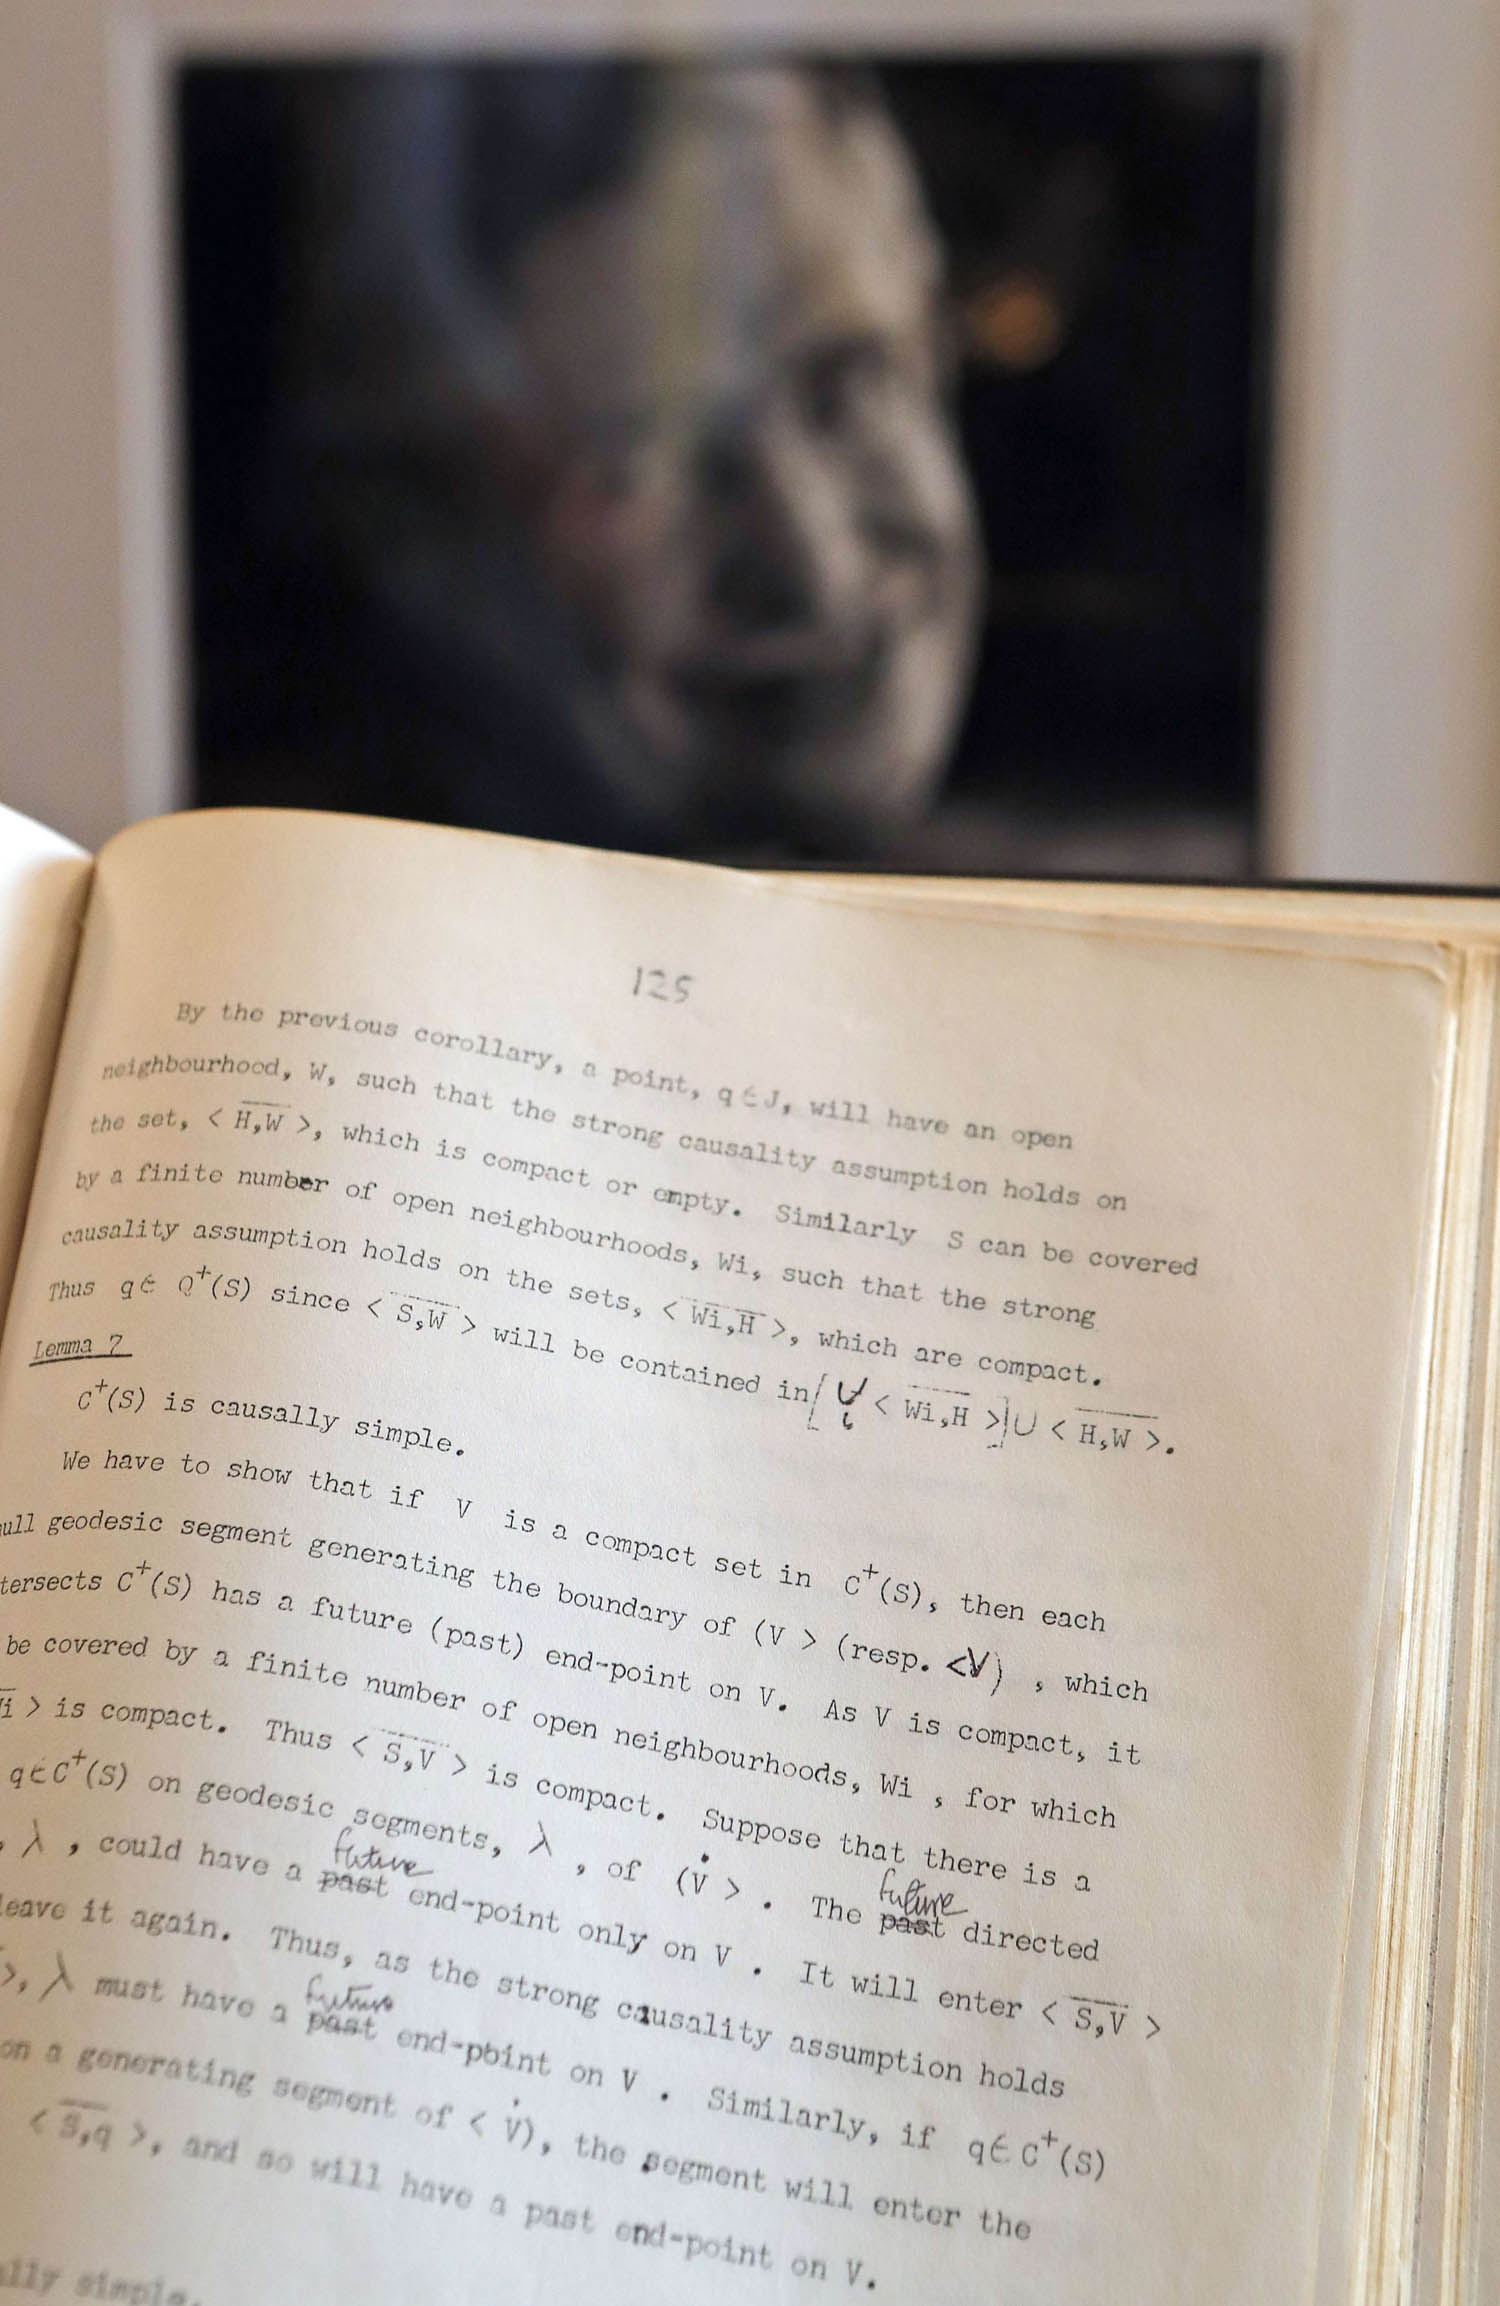 125
By the previous corollary, a point, q ∈ J, will have an open
neighbourhood, W, such that the strong causality assumption holds on
the set, < H,W >, which is compact or empty. Similarly S can be covered
by a finite number of open neighbourhoods, Wi, such that the strong
causality assumption holds on the sets, < Wi,H >, which are compact.
Thus q ∈ Q⁺(S) since < S,W > will be contained in [ ∪ i < Wi,H >] ∪ < H,W >.
Lemma 7
C⁺(S) is causally simple.
We have to show that if V is a compact set in C⁺(S), then each
ull geodesic segment generating the boundary of (V > (resp. <V) , which
tersects C⁺(S) has a future (past) end-point on V. As V is compact, it
be covered by a finite number of open neighbourhoods, Wi , for which
i > is compact. Thus < S,V > is compact. Suppose that there is a
q ∈ C⁺(S) on geodesic segments, λ , of (V̇ > . The past future directed
, λ , could have a past future end-point only on V . It will enter < S,V >
leave it again. Thus, as the strong causality assumption holds
>, λ must have a past future end-point on V . Similarly, if q ∈ C⁺(S)
on a generating segment of < V̇), the segment will enter the
< S,q >, and so will have a past end-point on V.
ally simple.